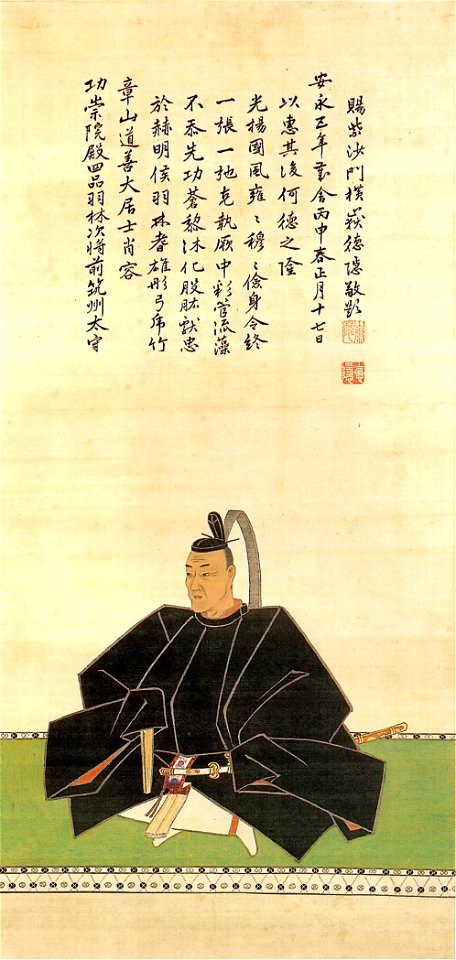 功崇院殿四品羽林次將前筑州太守
章山道善大居士肖容
於赫明侯羽林耆雄彤弓虎竹
不忝先功蒼黎沐化股肱獻忠
一張一弛克執厥中彩管流藻
光揚國風雍〻穆〻儉身令終
以惠其後何德之隆
安永五年歳舍丙申春正月十七日
賜紫沙門横嶽德隱敬題